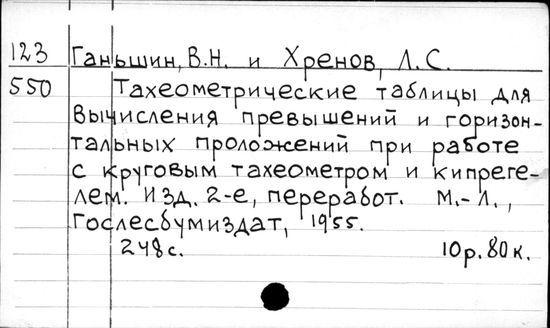 123 Ганьшин, В.Н. и Хренов, Л.С.
550 Тахеометрические таблицы для
вычисления превышений и горизон-
тальных проложений при работе
с круговым тахеометром и кипреге-
лем. Изд. 2-е, переработ. М.-Л.,
Гослесбумиздат, 1955.
248с. 10р.80к.